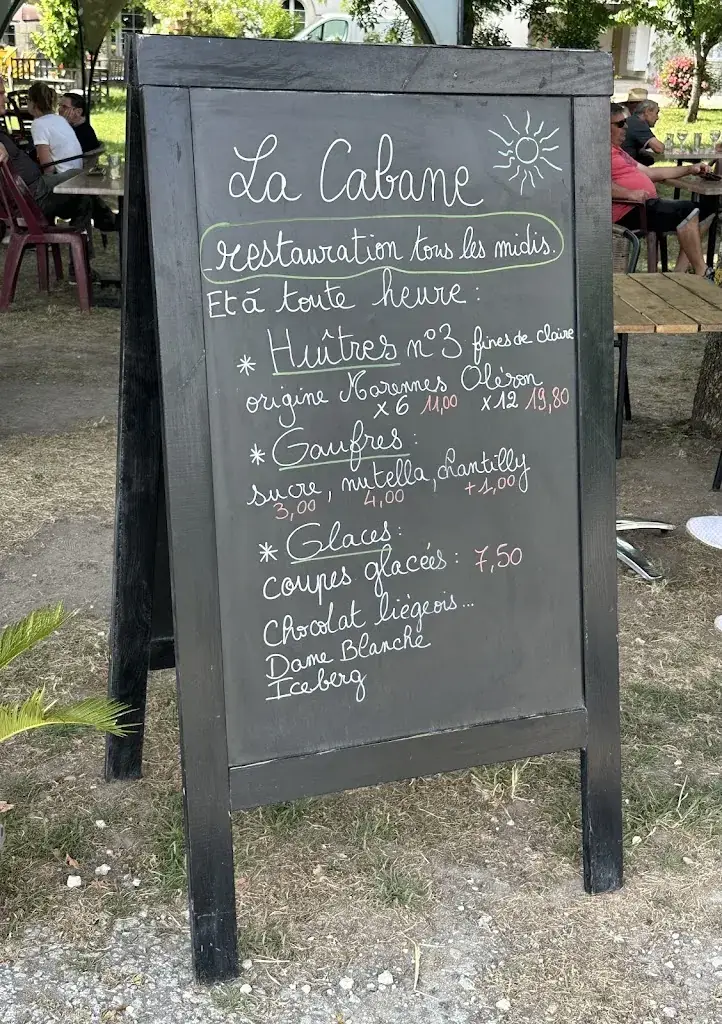 La Cabane
restauration tous les midis.
Et ā toute heure :
* Huîtres n°3 fines de claire
origine Marennes Oléron
x6 11,00 x12 19,80
* Gaufres :
sucre, nutella, chantilly
3,00 4,00 +1,00
* Glaces :
coupes glacées : 7,50
Chocolat liégeois...
Dame Blanche
Iceberg